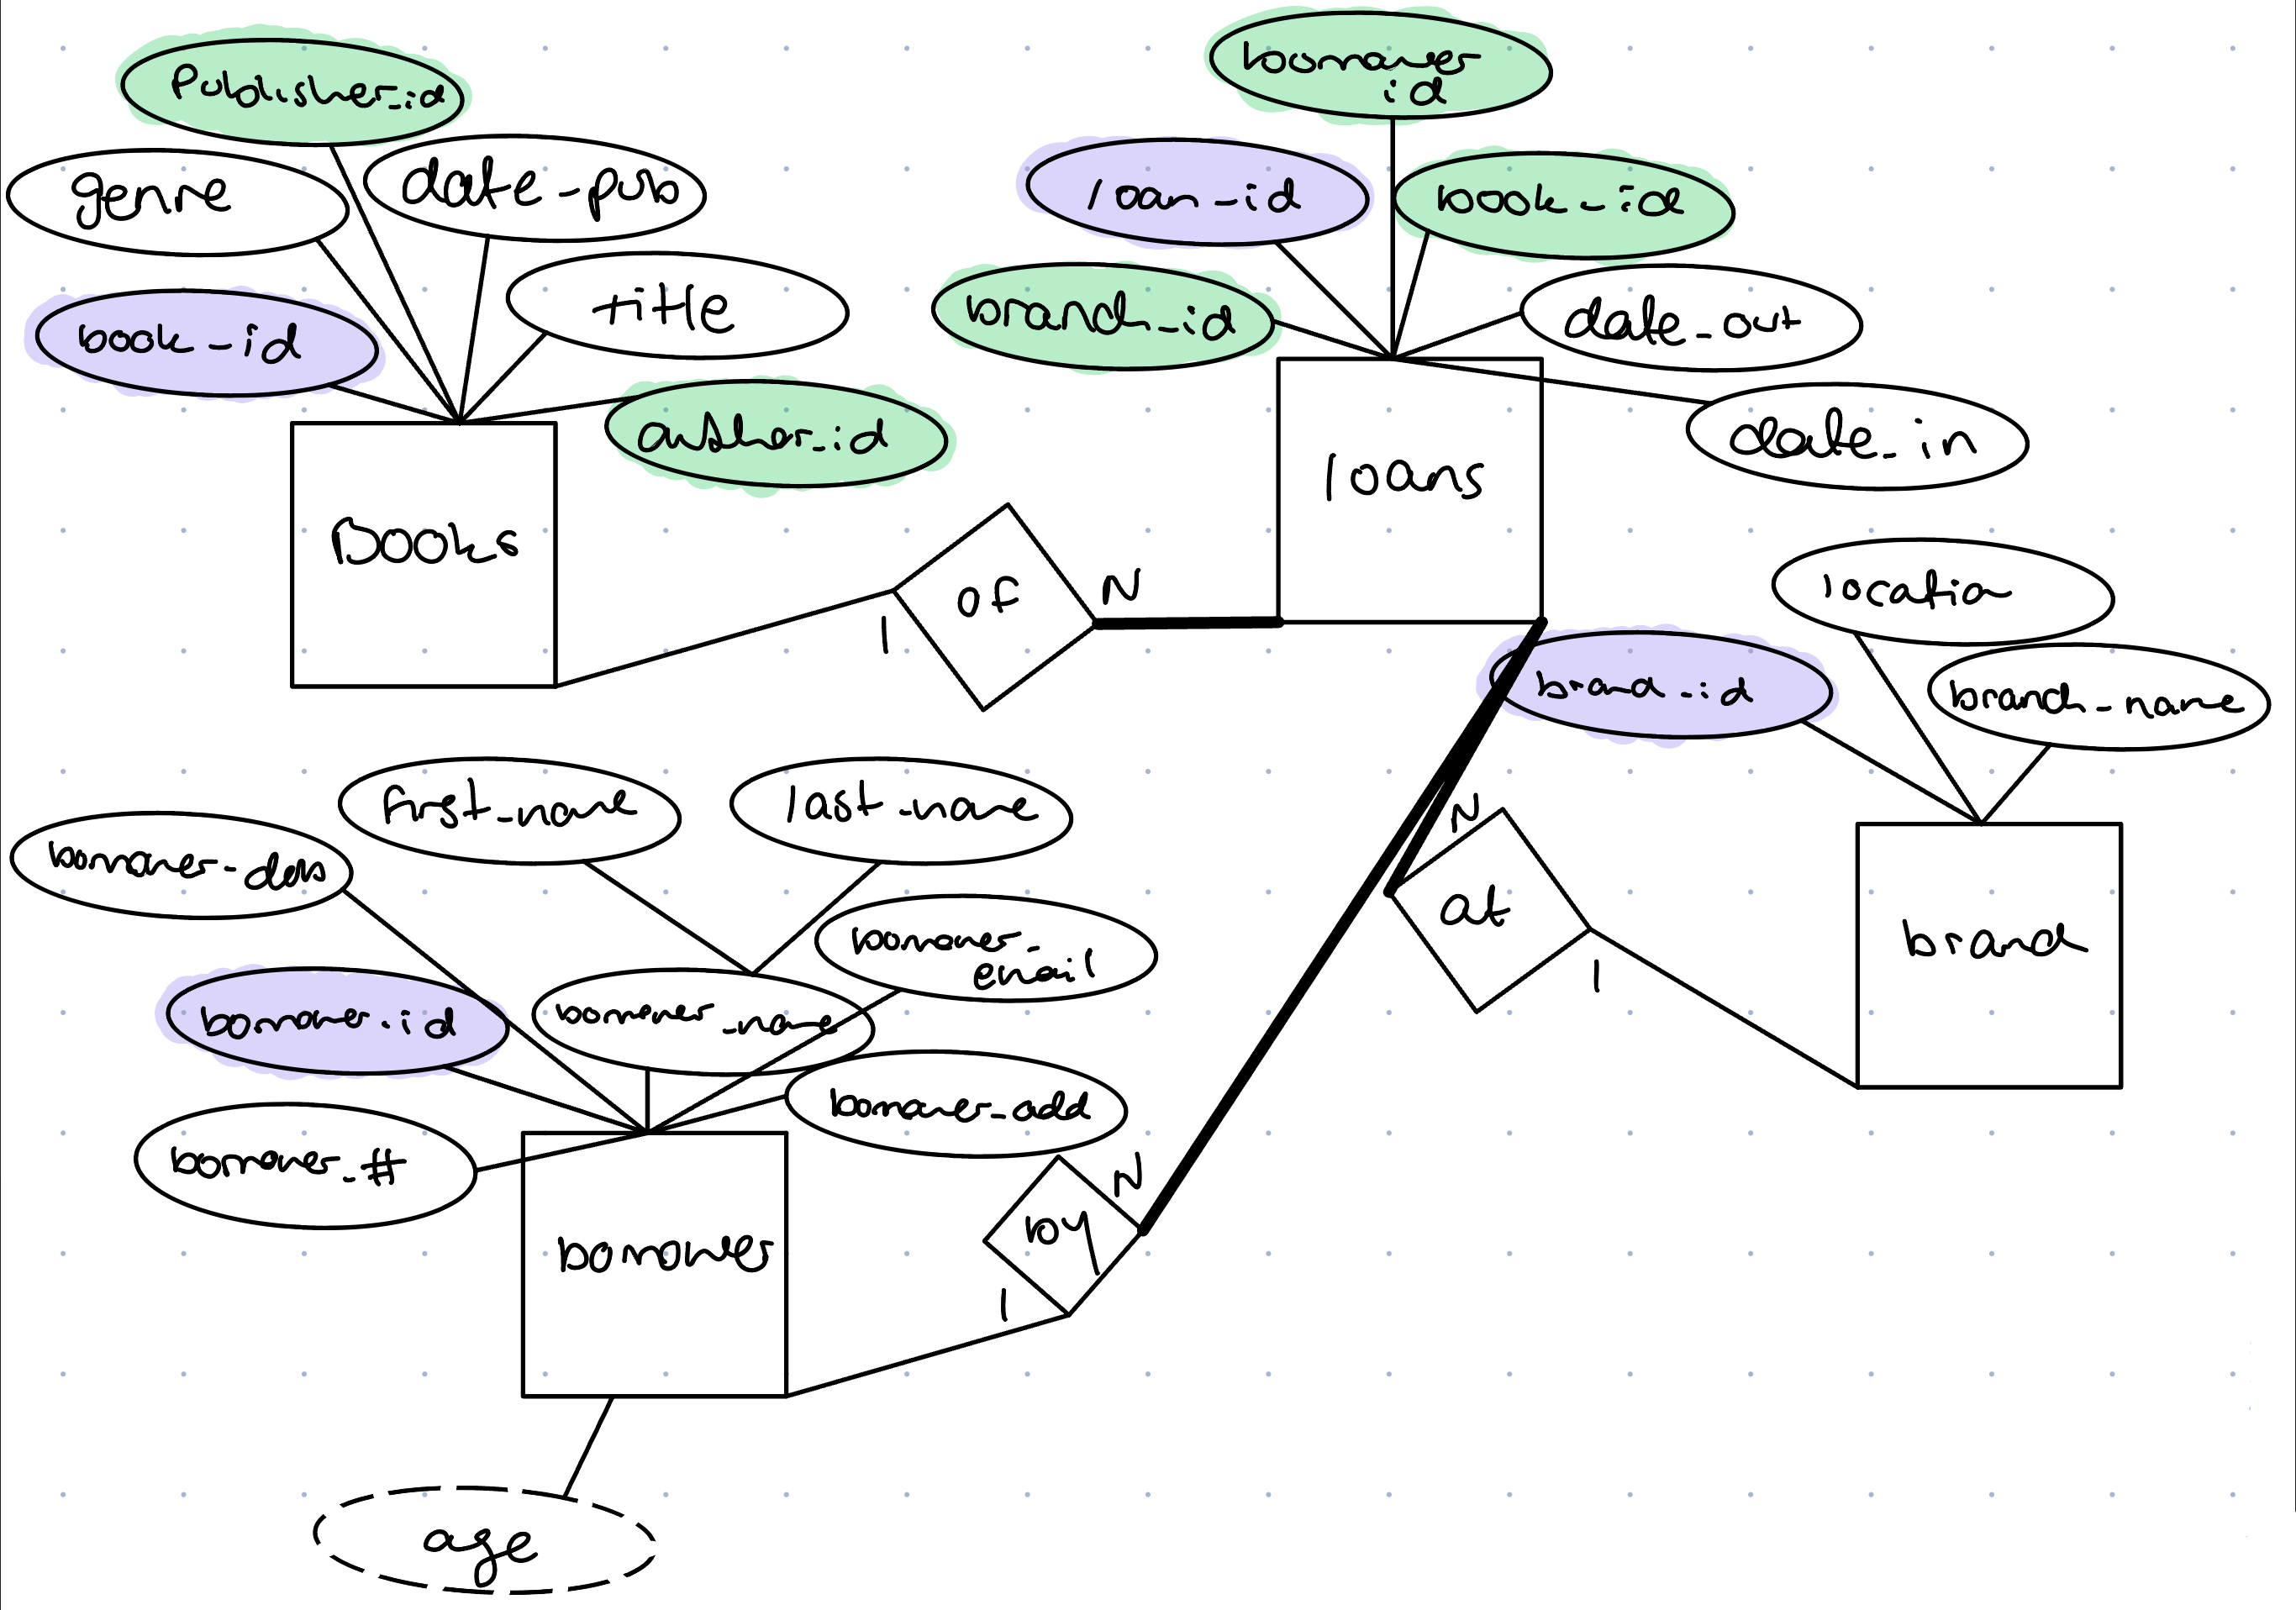 Publisher_id
genre
date_pub
book_id
title
author_id
Books
borrower
id
loan_id
book_id
branch_id
date_out
date_in
loans
of
1
N
location
branch_id
branch_name
branch
at
N
1
first_name
last_name
borrower_dob
borrower_
email
borrower_id
borrower_name
borrower_add
borrower_#
borrower
by
N
1
age